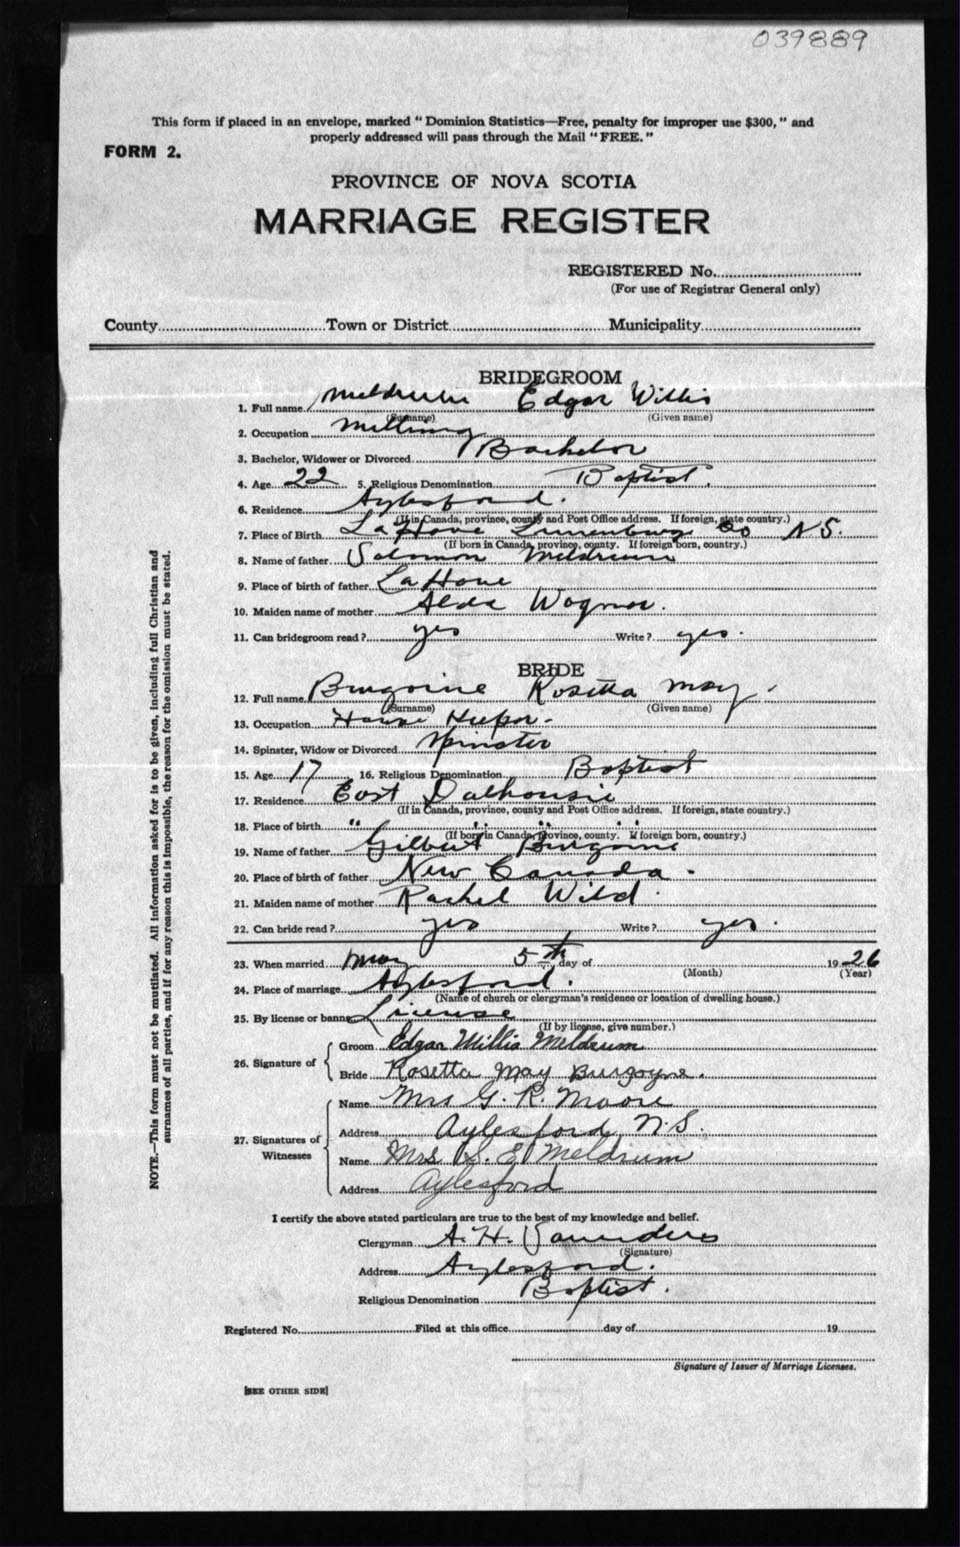 039889
This form if placed in an envelope, marked "Dominion Statistics—Free, penalty for improper use $300," and
properly addressed will pass through the Mail "FREE."
FORM 2.
PROVINCE OF NOVA SCOTIA
MARRIAGE REGISTER
REGISTERED No.
(For use of Registrar General only)
County Town or District Municipality
BRIDEGROOM
1. Full name Meldrum Edgar Willis
(Surname) (Given name)
2. Occupation Milling
3. Bachelor, Widower or Divorced Bachelor
4. Age 22 5. Religious Denomination Baptist.
6. Residence Aylesford.
(If in Canada, province, county and Post Office address. If foreign, state country.)
7. Place of Birth LaHave Lunenburg Co N.S.
(If born in Canada, province, county. If foreign born, country.)
8. Name of father Solomon Meldrum
9. Place of birth of father LaHave
10. Maiden name of mother Alda
11. Can bridegroom read? yes Write? yes.
BRIDE
12. Full name Burgoine Rosetta May.
(Surname) (Given name)
13. Occupation House Keeper-
14. Spinster, Widow or Divorced Spinster
15. Age 17 16. Religious Denomination Baptist
17. Residence East Dalhousie
(If in Canada, province, county and Post Office address. If foreign, state country.)
18. Place of birth " " " "
(If born in Canada, province, county. If foreign born, country.)
19. Name of father Gilbert Burgoine
20. Place of birth of father New Canada.
21. Maiden name of mother Rachel Wild
22. Can bride read? yes Write? yes.
23. When married May 5th day of 1926
(Month) (Year)
24. Place of marriage Aylesford.
(Name of church or clergyman's residence or location of dwelling house.)
25. By license or banns License
(If by license, give number.)
26. Signature of Groom Edgar Willis Meldrum
Bride Rosetta May Burgoyne.
27. Signatures of Witnesses
Name Mrs G. R. Moore
Address Aylesford N.S.
Name Mrs S. E. Meldrum
Address Aylesford
I certify the above stated particulars are true to the best of my knowledge and belief.
Clergyman A. H. Saunders
(Signature)
Address Aylesford.
Religious Denomination Baptist.
Registered No. Filed at this office day of 19
Signature of Issuer of Marriage Licenses.
[SEE OTHER SIDE]
NOTE.—This form must not be mutilated. All information asked for is to be given, including full Christian and
surnames of all parties, and if for any reason this is impossible, the reason for the omission must be stated.